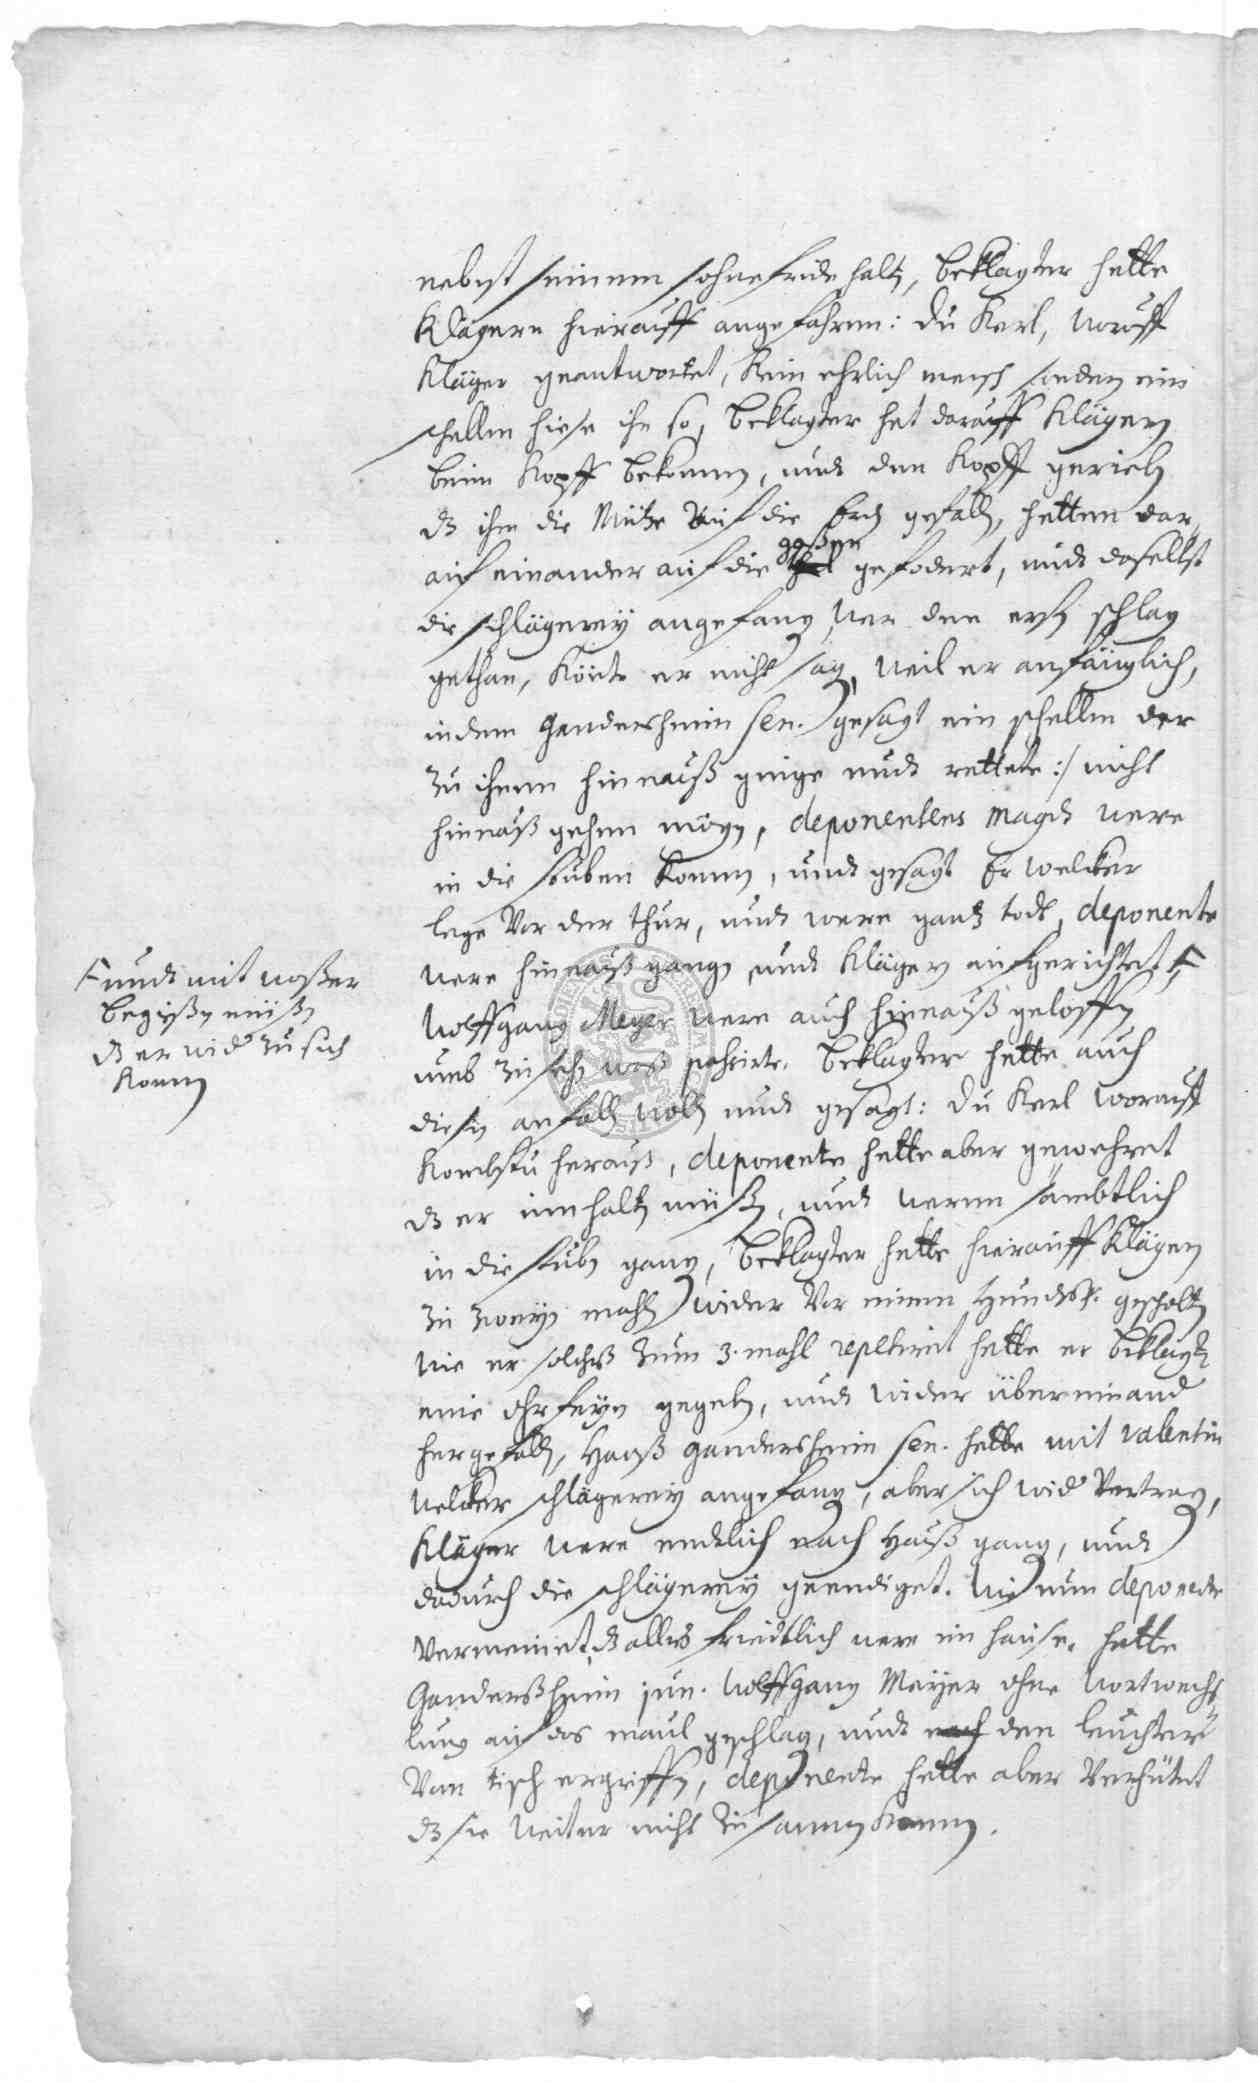 nebest seinem sohne fride halten, beklagter hette
Klägern hierauff angefahren: du Kerl, worauff
Kläger geantwortet, Kein ehrlich mensch sondern ein
schellm hiese ihn so, beklagter het darauff Klägern
beim Kopff bekommen, undt den Kopff gerieben
dz ihm die Mütze auf die Erde gefallen, hetten dar-
auf einander auf die gaßen gefodert, undt daselbst
die schlägerey angefangen, wer den ersten schlag
gethan, könte er nicht sagen, weil er anfänglich,
indem Gandersheim sen. gesagt ein schellm der
zu ihnen hinnauß ginge undt rettete :/ nicht
hinnauß gehen mögen, deponentens magdt were
in die stuben kommen, undt gesagt Er welcker
lege vor der thür, undt were gantz todt, deponente
were hinnauß gangen undt Klägern aufgerichtet
undt mit waßer
begißen müßen
dz er wider zu sich
kommen
Wolffgang Meyer were auch hinnauß geloffen
umb zu sehen was passirte. beklagter hette auch
diesen anfallen wollen undt gesagt: du Kerl worauff
kombstu herauß, deponente hette aber gewehret
dz er innhalten müßen, undt weren sämbtlich
in die stuben gangen, beklagter hette hierauff Klägern
zu zweyen mahlen wider vor einen Hundsf. gescholten
wie er solches zum 3. mahl repetirt hette er beklagten
eine ohrfeigen gegeben, undt wider übereinander
hergefallen, Hanß Gandersheim sen. hette mit Valentin
Welcker schlägerey angefangen, aber sich wider vertragen,
Kläger were endtlich nach Hauß gangen, undt
dadurch die schlägerey geendiget. Wie nun deponente
vermeinet, dz alles friedtlich were im hause, hette
Ganderßheim jun. Wolffgang Meyer ohne wortwechs-
lung auf das maul geschlagen, undt den leuchter
vom tisch ergriffen, deponente hette aber verhütet
dz sie weiter nicht zusammen kommen.